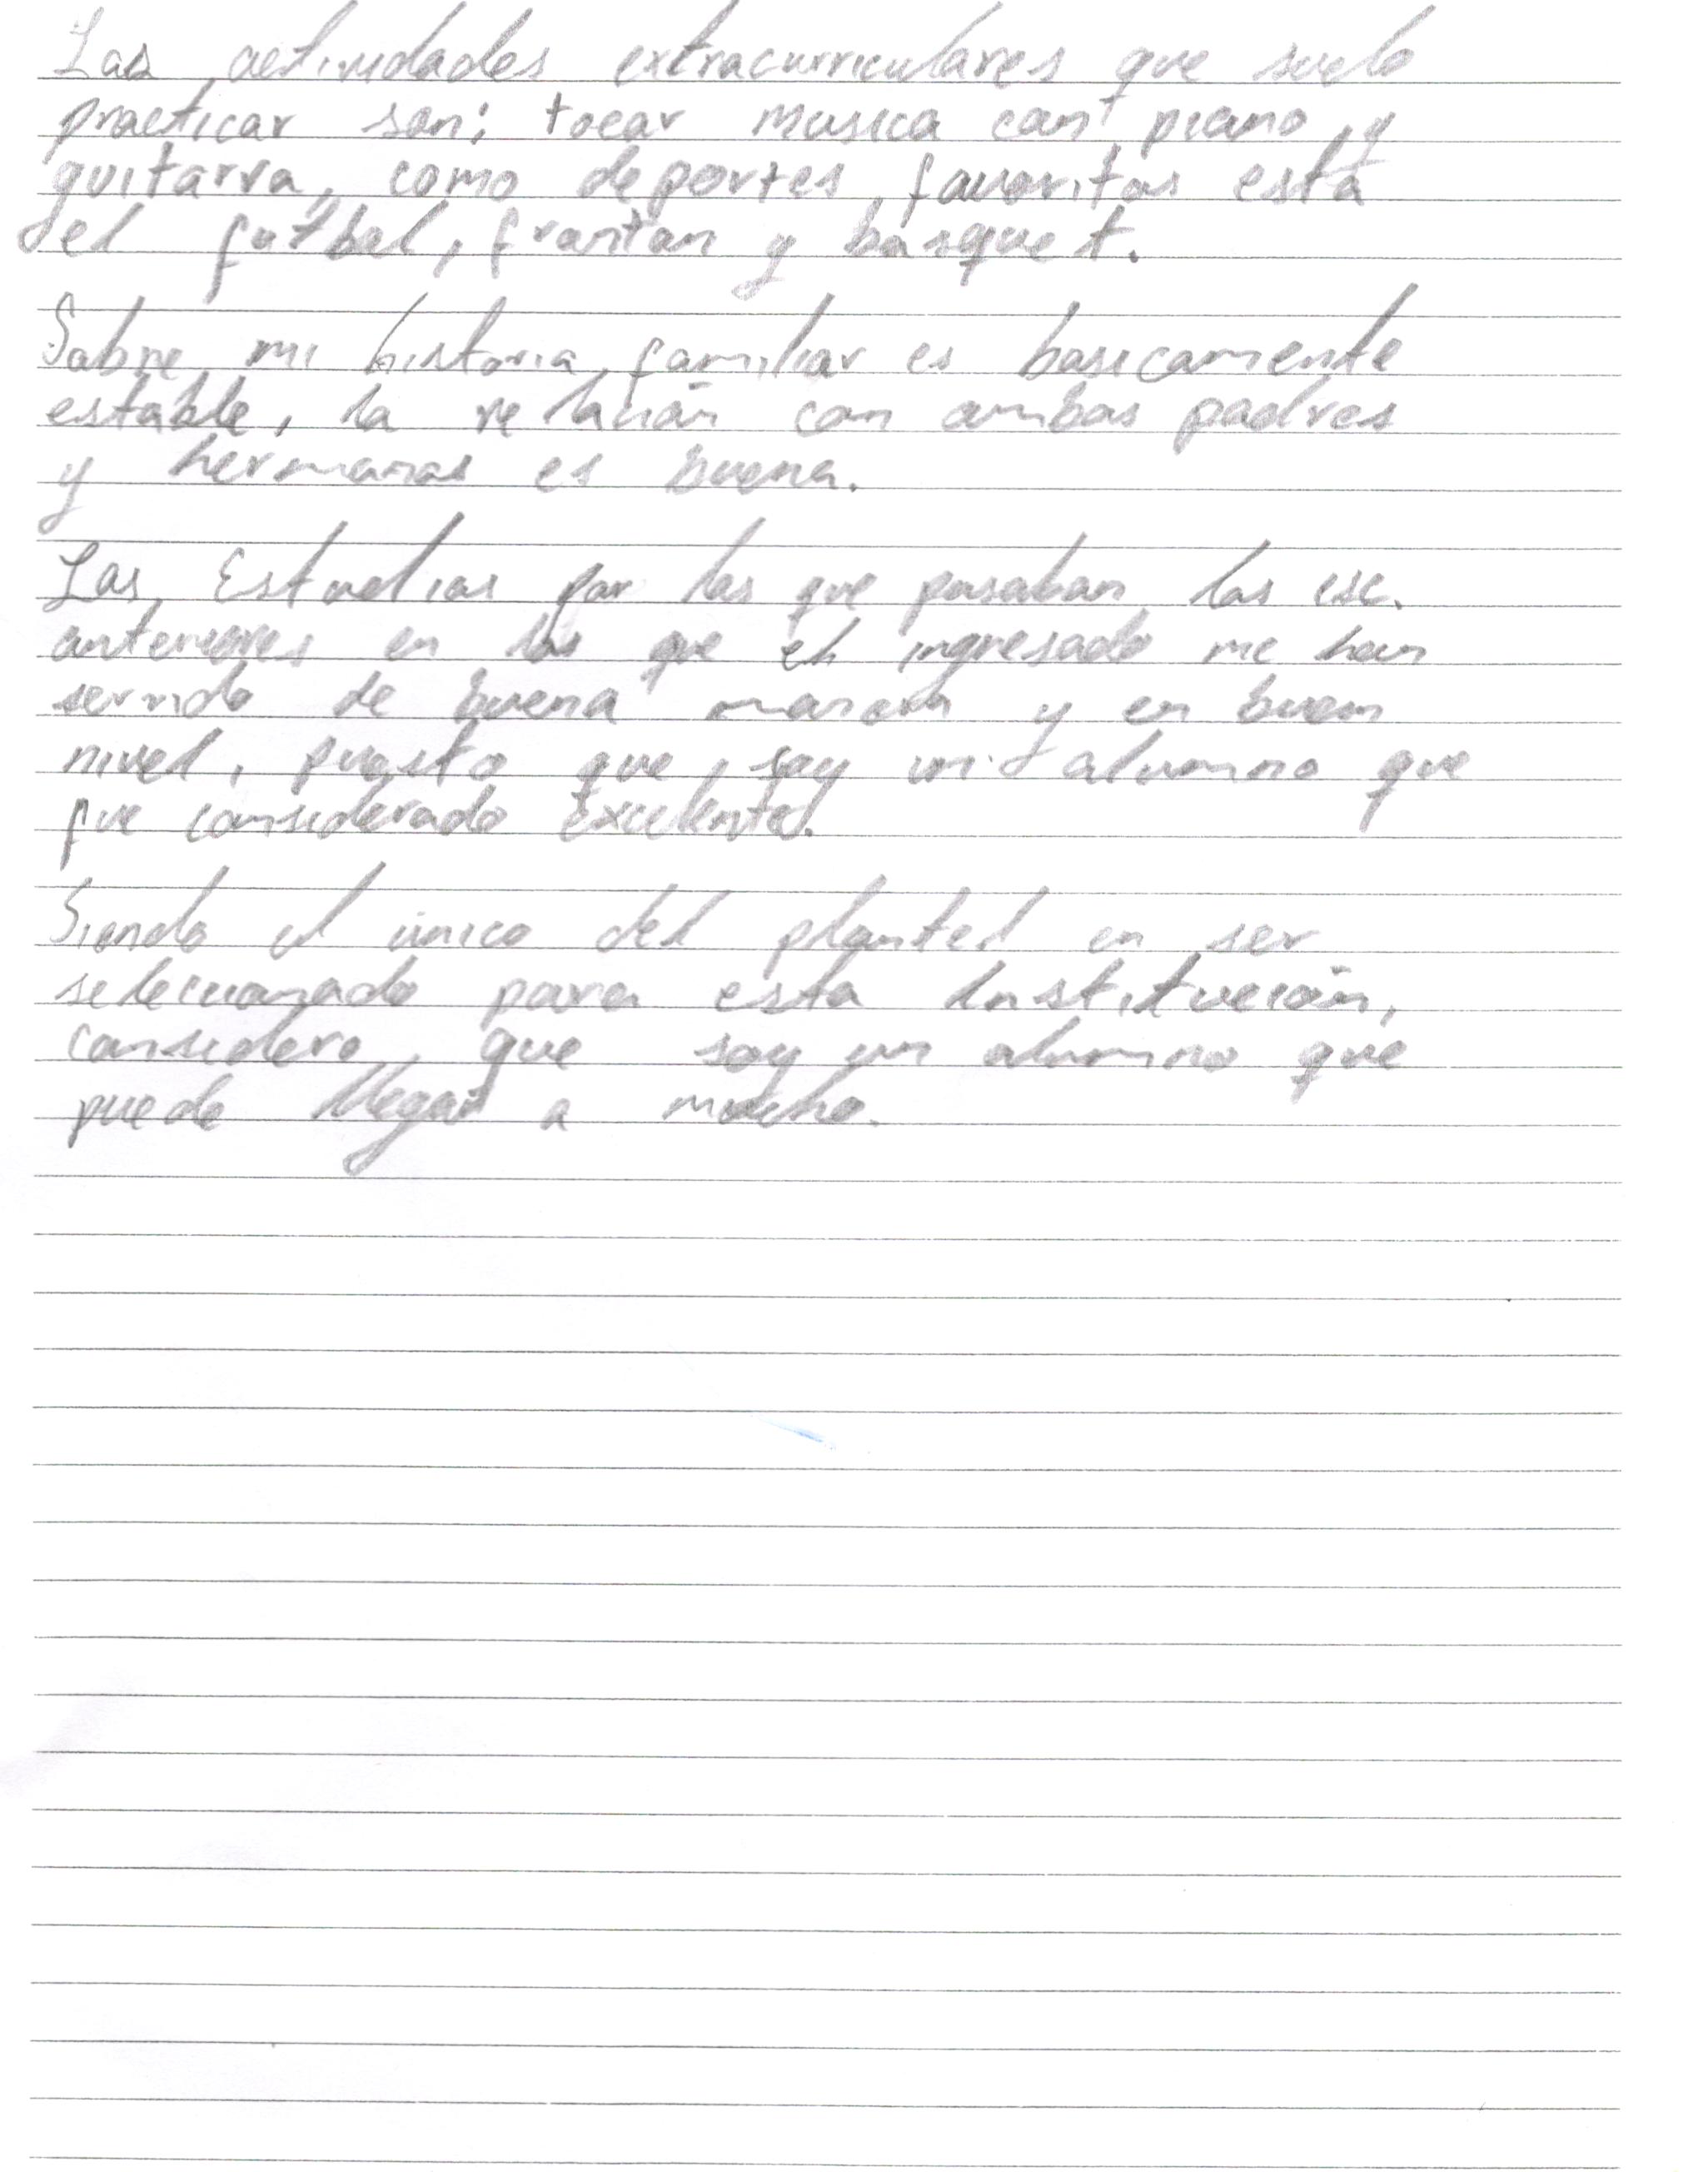 Las actividades extracurriculares que suelo
practicar son; tocar musica con piano y
guitarra, como deportes favoritos está
el futbol, fronton y básquet.
Sobre mi historia familiar es basicamente
estable, la relación con ambos padres
y hermanos es buena.
Los Estudios por los que pasaban las esc.
anteriores en las que eh ingresado me han
servido de buena manera y en buen
nivel, puesto que, soy un alumno que
fue considerado Excelente.
Siendo el único del plantel en ser
seleccionado para esta Institución,
considero, que soy un alumno que
puede llegar a mucho.